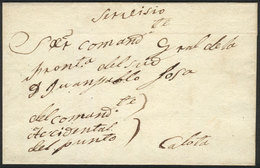 Servisio
Sor. Comand.te Gral de la
fronta del Sud
D Juan pablo Sosa
del comand.te
Accidental
del punto
Calota